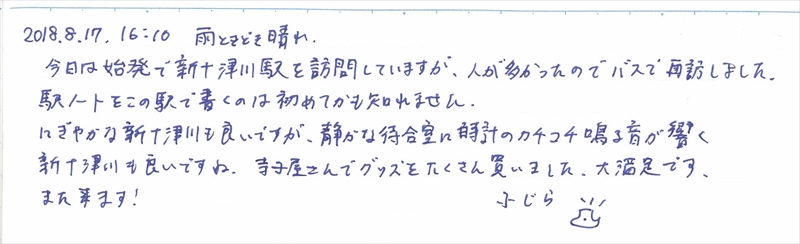 2018.8.17. 16:10 雨ときどき晴れ.
今日は始発で新十津川駅を訪問していますが、人が多かったのでバスで再訪しました.
駅ノートをこの駅で書くのは初めてかも知れません.
にぎやかな新十津川も良いですが、静かな待合室に時計のカチコチ鳴る音が響く
新十津川も良いですね. 寺子屋さんでグッズをたくさん買いました、大満足です、
また来ます! ふじら